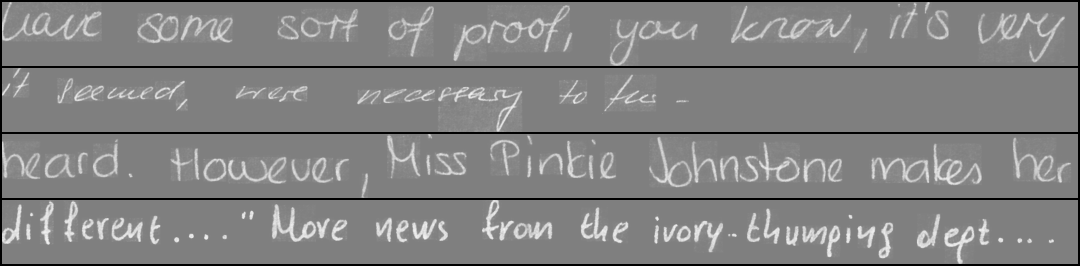 have some sort of proof, you know, it's very
it seemed, were necessary to
heard. However, Miss Pinkie Johnstone makes her
different...." More news from the ivory-thumping dept....